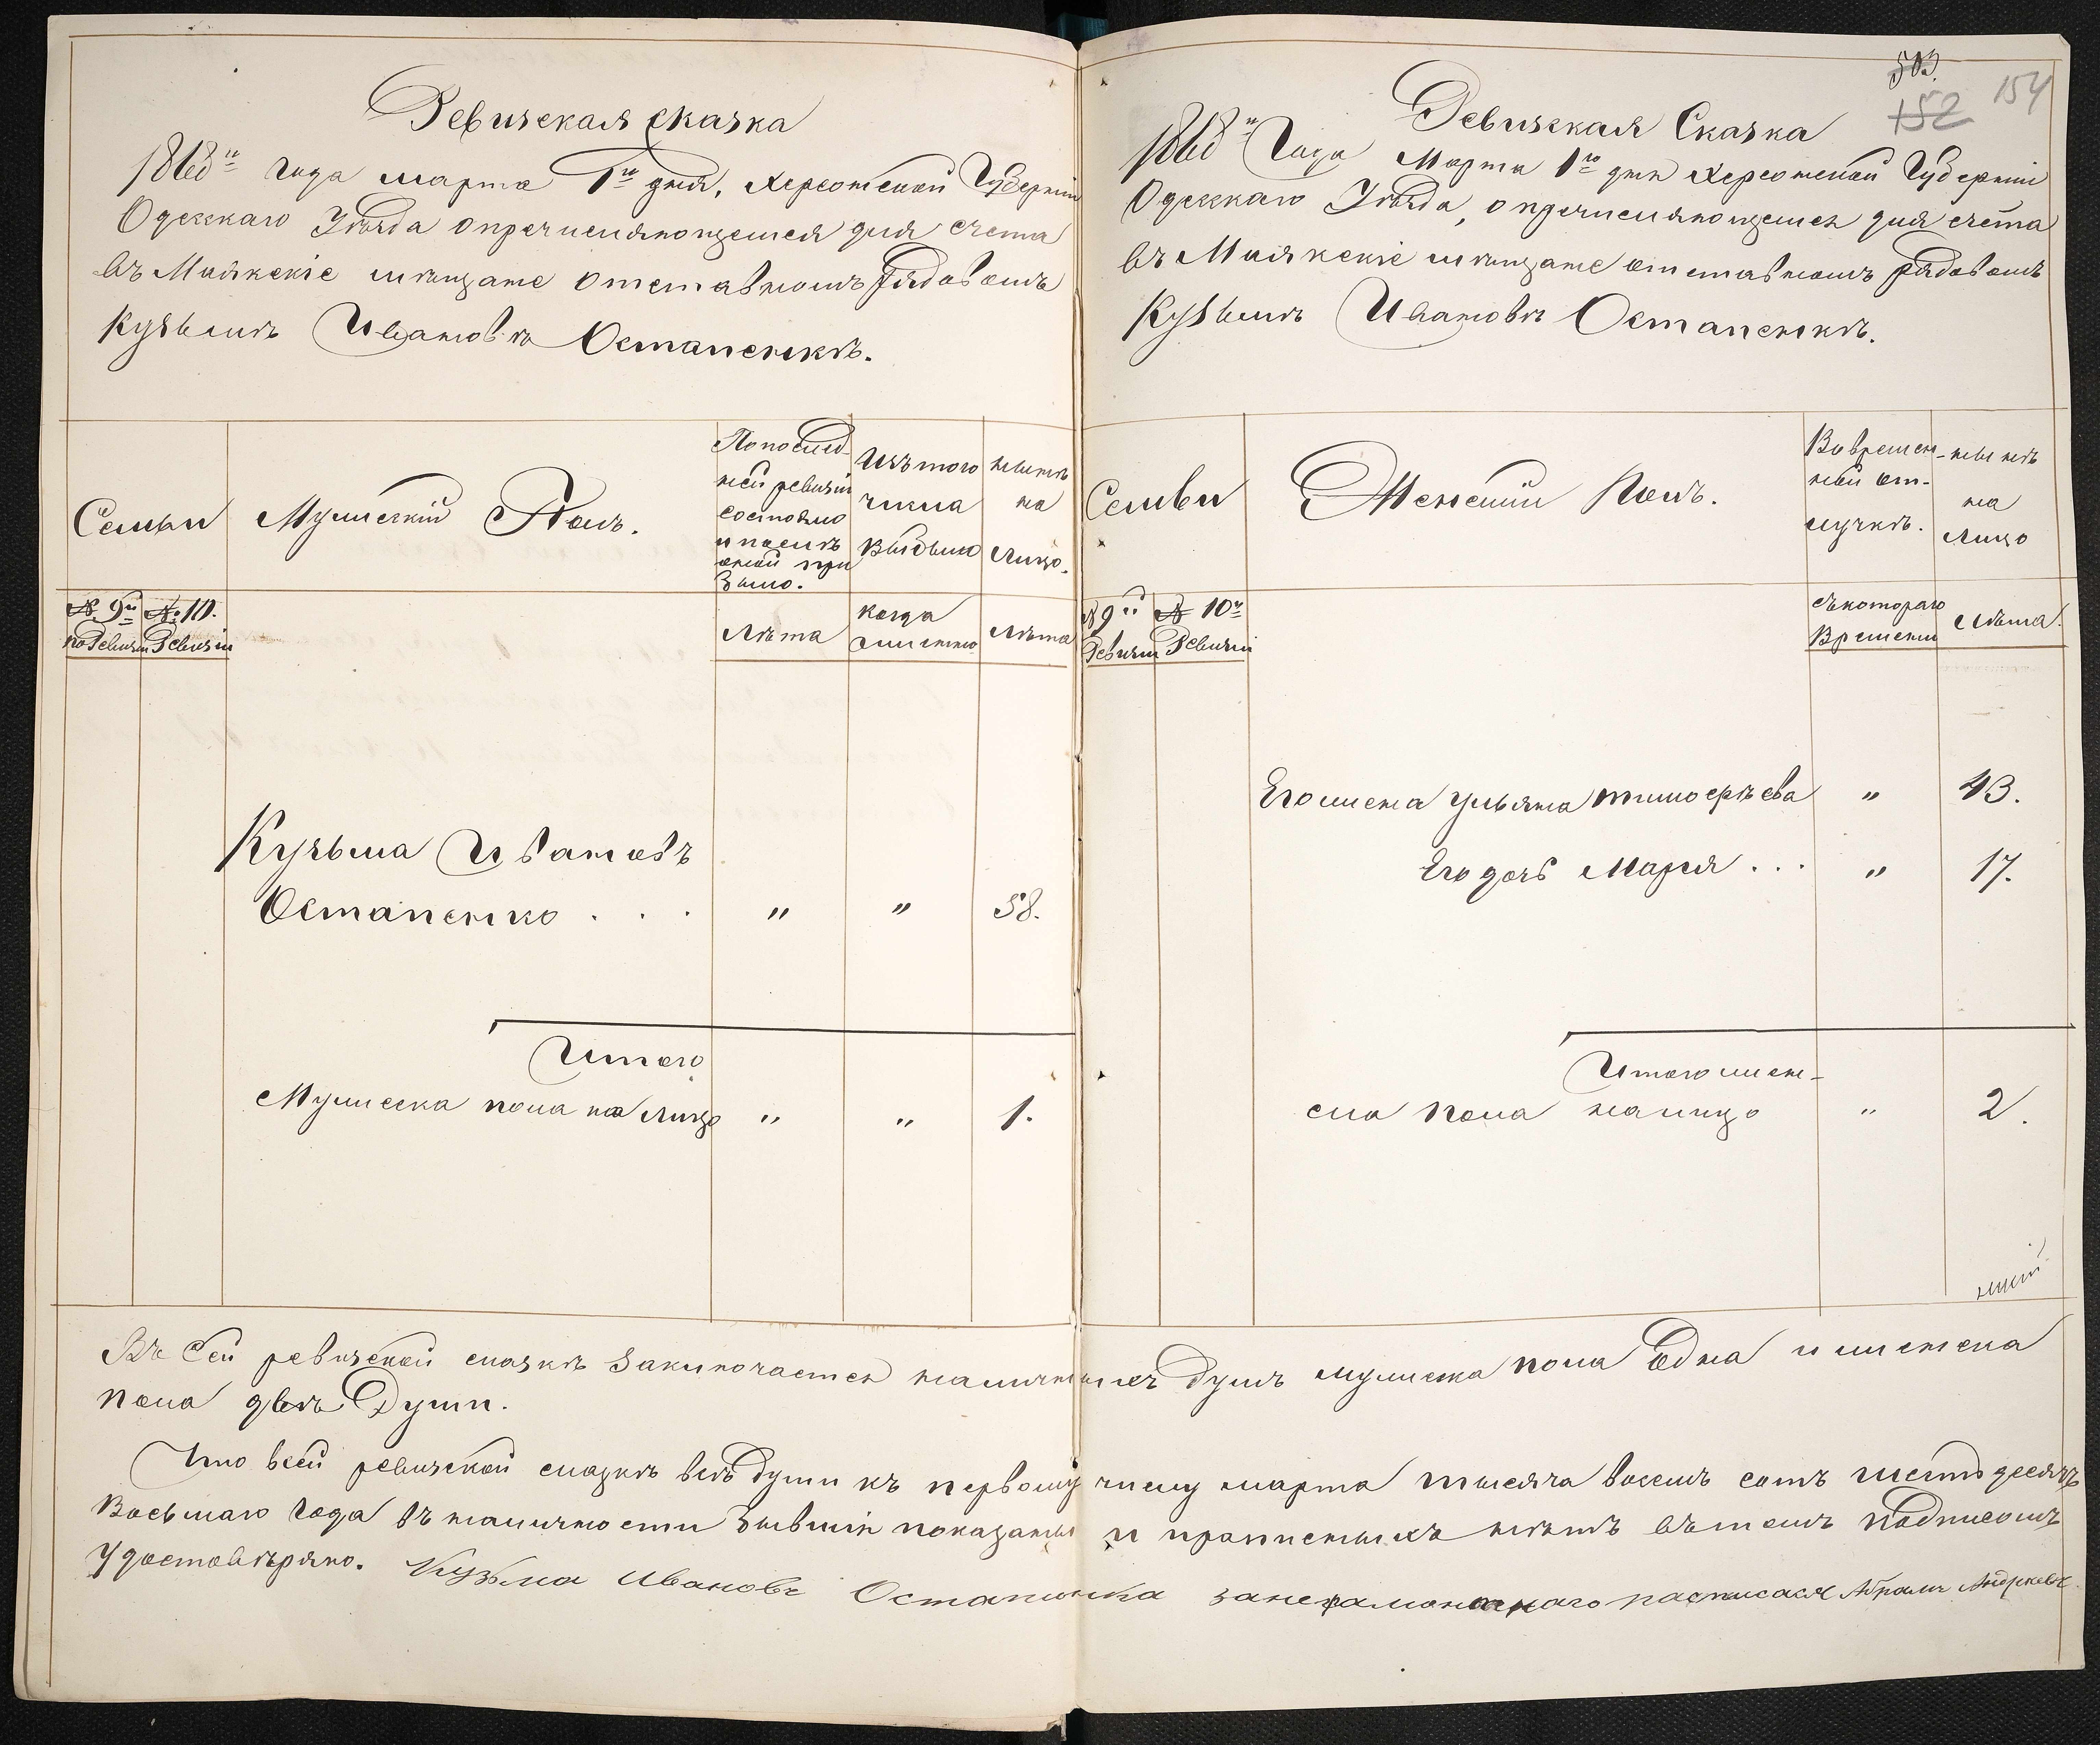 Ревизская сказка
1868го Года марта 1го дня, Херсонской Губерніи
Одесскаго Уѣзда о перечисляющемся для счета
въ Маякскіе мѣщане отставномъ рядовомъ
Кузьмѣ Ивановѣ Остапенкѣ.
Семьи
Мужескій Полъ.
По послѣд-
ней ревизіи
состояло
и послѣ
оной при
было.
Изъ того
числа
выбыло
нынѣ
на
лицо.
№ 9й
по Ревизіи
№ 10.
Ревизіи
Лѣта
когда
именно
Лѣта
Кузьма Ивановъ
Остапенко . . . " " 58.
Итого
Мужеска пола на лицо " " 1.
503.
152
154
Ревизская Сказка
1868го Года Марта 1го дня Херсонской Губерніи
Одесскаго Уѣзда, о перечисляющемся для счета
въ Маякскіе мѣщане отставномъ рядовомъ
Кузьмѣ Ивановѣ Остапенкѣ.
Семьи
Женскій Полъ.
Во времен-
ной от-
лучкѣ.
нынѣ
на
лицо
№ 9й
Ревизіи
№ 10й
Ревизіи
съ котораго
времени
Лѣта.
Его жена Ульяна Тимофеева " 43.
Его дочь Марія . . . " 17.
Итого жен-
ска пола на лицо " 2.
Въ сей ревизской сказкѣ заключается наличныхъ душъ мужеска пола одна и женска
пола двѣ души.
Что въ сей ревизской сказкѣ всѣ души къ первому числу марта тысяча восемъ сотъ шестьдесятъ
Восьмаго Года въ наличности бывшія показаны и прописныхъ нѣтъ въ томъ подписомъ
Удостовѣряю. Кузьма Ивановъ Остапенка за неграмотнаго расписася Абрамъ